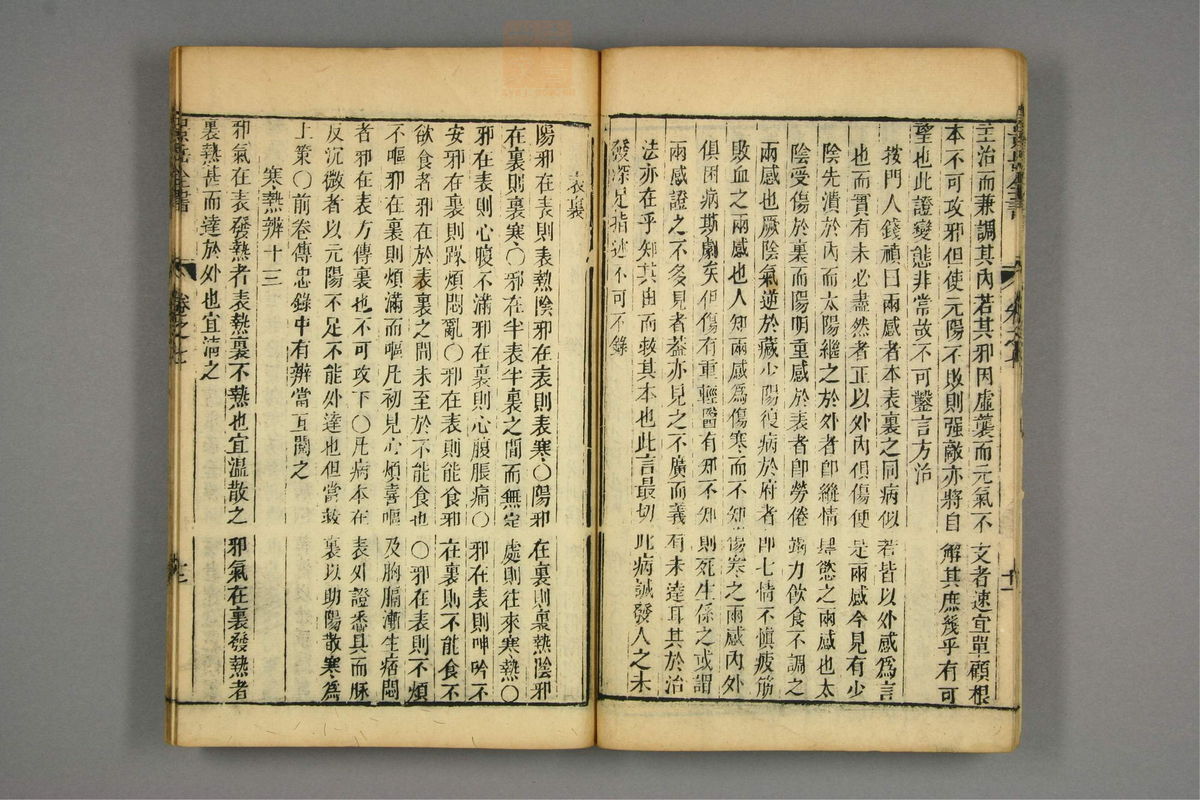 主治而兼調其內若其邪因虛襲而元氣不支者速宜單顧根
本不可攻邪但使元陽不敗則强敵亦將自解其庶幾乎有可
望也此證變態非常故不可鑿言方治
按門人錢禎曰兩感者本表裏之同病似若皆以外感為言
也而實有未必盡然者正以外內俱傷便是兩感今見有少
陰先潰於內而太陽繼之於外者卽縱情肆慾之兩感也太
陰受傷於裏而陽明重感於表者卽勞倦竭力飲食不調之
兩感也厥陰氣逆於藏少陽復病於府者卽七情不慎疲筋
敗血之兩感也人知兩感為傷寒而不知傷寒之兩感內外
俱困病斯劇矣但傷有重輕醫有知不知則死生係之或謂
兩感證之不多見者蓋亦見之不廣而義有未達耳其於治
法亦在乎知其由而救其本也此言最切此病誠發人之未
發深足指迷不可不錄
表裏
陽邪在表則表熱陰邪在表則表寒○陽邪在裏則裏熱陰邪
在裏則裏寒○邪在半表半裏之間而無定處則往來寒熱○
邪在表則心腹不滿邪在裏則心腹脹痛○邪在表則呻吟不
安邪在裏則躁煩悶亂○邪在表則能食邪在裏則不能食不
欲食者邪在於表裏之間未至於不能食也○邪在表則不煩
不嘔邪在裏則煩滿而嘔凡初見心煩喜嘔及胸膈漸生痞悶
者邪在表方傳裏也不可攻下○凡病本在表外證悉具而脉
反沉微者以元陽不足不能外達也但當救裏以助陽散寒為
上策○前卷傳忠錄中有辨當互閱之
寒熱辨十三
邪氣在表發熱者表熱裏不熱也宜溫散之邪氣在裏發熱者
裏熱甚而達於外也宜淸之
卷之七
十二
十一